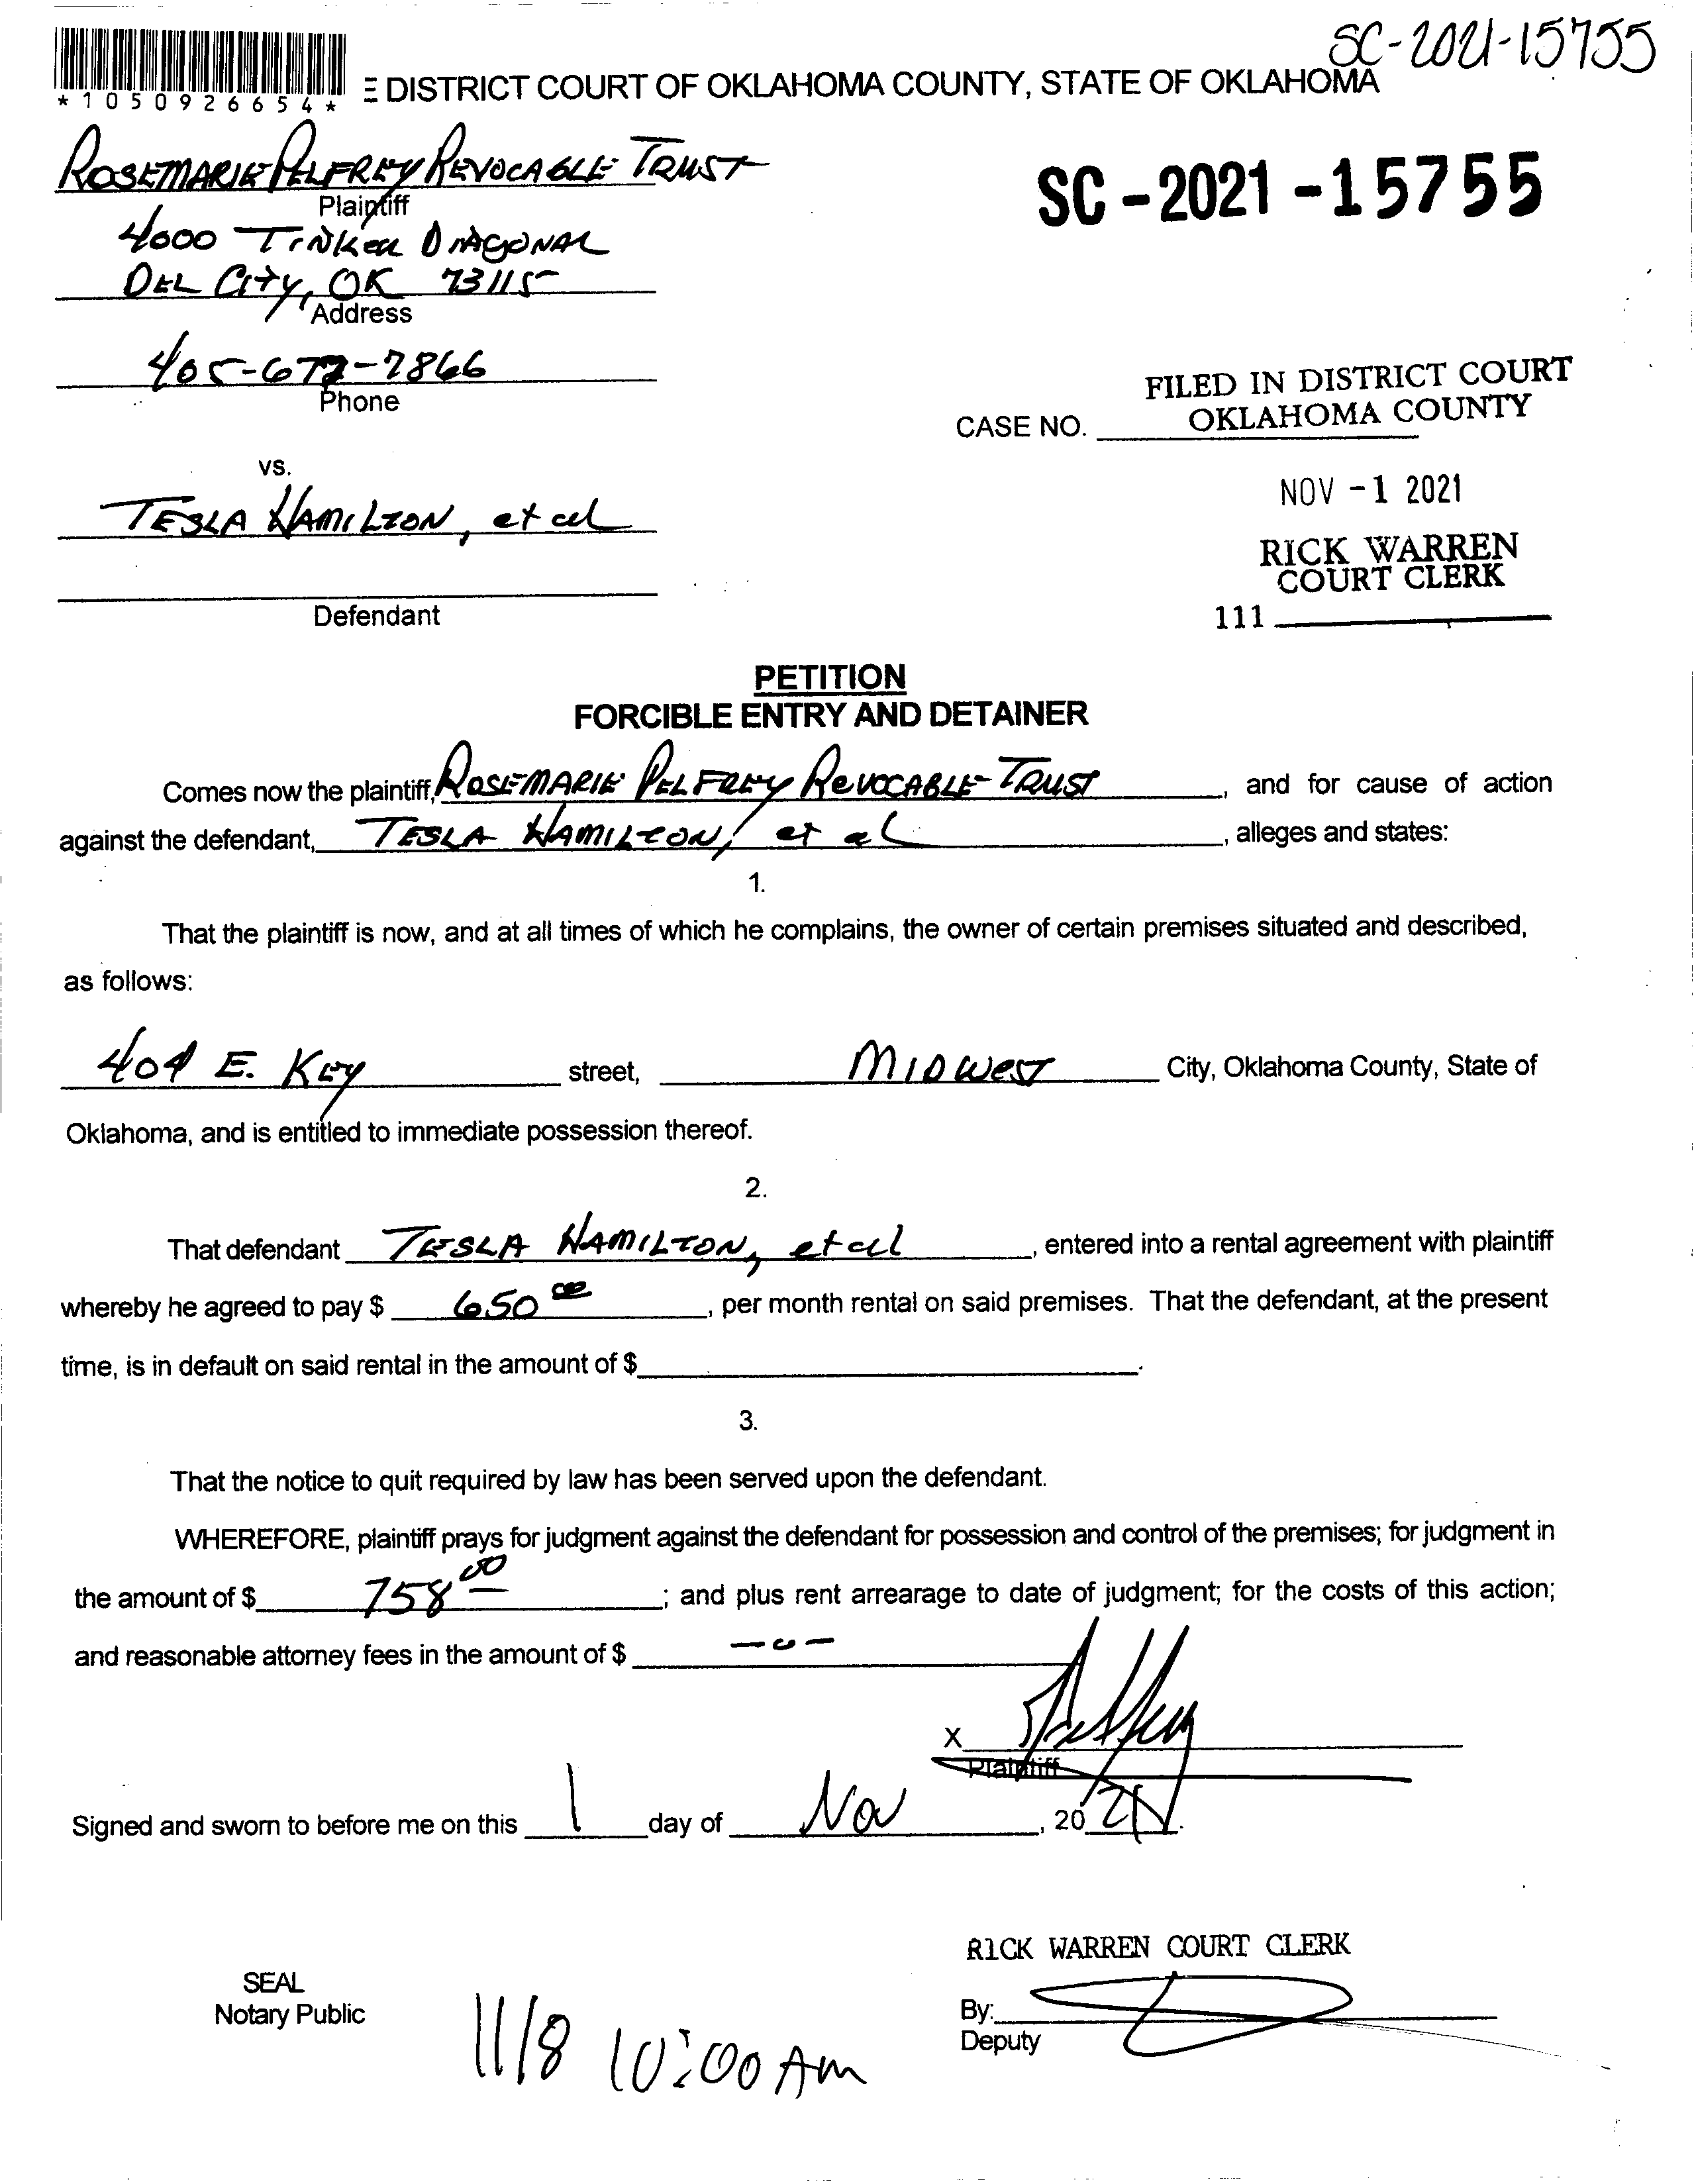 SC-2021-15755
*1050926654*
E DISTRICT COURT OF OKLAHOMA COUNTY, STATE OF OKLAHOMA
ROSEMARIE PELFREY REVOCABLE TRUST
Plaintiff
SC-2021-15755
4000 TINKER DIAGONAL
DEL CITY, OK 73115
Address
405-672-7866
Phone
FILED IN DISTRICT COURT
OKLAHOMA COUNTY
CASE NO.
vs.
NOV -1 2021
TESLA HAMILTON, et al
RICK WARREN
COURT CLERK
Defendant
111
PETITION
FORCIBLE ENTRY AND DETAINER
Comes now the plaintiff, ROSEMARIE PELFREY REVOCABLE TRUST, and for cause of action
against the defendant, TESLA HAMILTON, et al, alleges and states:
1.
That the plaintiff is now, and at all times of which he complains, the owner of certain premises situated and described,
as follows:
404 E. KEY street, MIDWEST City, Oklahoma County, State of
Oklahoma, and is entitled to immediate possession thereof.
2.
That defendant TESLA HAMILTON, et al, entered into a rental agreement with plaintiff
whereby he agreed to pay $ 650 00, per month rental on said premises. That the defendant, at the present
time, is in default on said rental in the amount of $.
3.
That the notice to quit required by law has been served upon the defendant.
WHEREFORE, plaintiff prays for judgment against the defendant for possession and control of the premises; for judgment in
the amount of $ 758 00; and plus rent arrearage to date of judgment; for the costs of this action;
and reasonable attorney fees in the amount of $ -0-
X
Plaintiff
Signed and sworn to before me on this 1 day of Nov, 2021.
RICK WARREN COURT CLERK
SEAL
Notary Public
By:
Deputy
11/8 10:00 AM